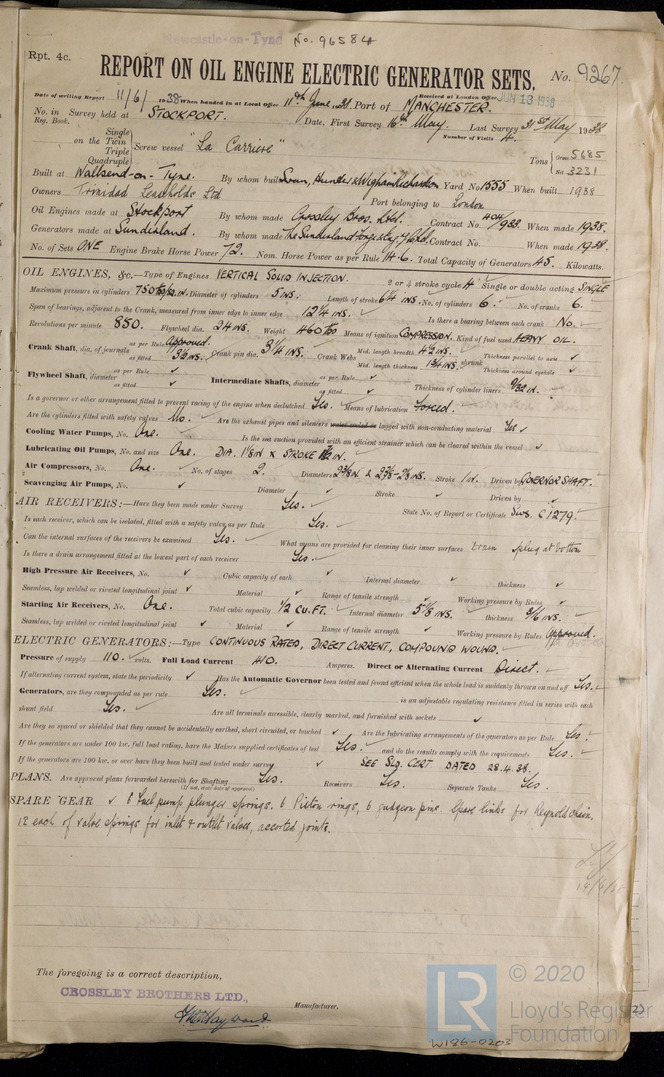 Newcastle-on-Tyne No. 96584
Rpt. 4c.
REPORT ON OIL ENGINE ELECTRIC GENERATOR SETS. No. 9267.
Date of writing Report 11/6/1938 When handed in at Local Office 11th June, 1938. Port of MANCHESTER. Received at London Office JUN 13 1938
No. in Reg. Book. Survey held at STOCKPORT. Date, First Survey 16th May. Last Survey 31st May 1938
Number of Visits 4.
on the Single Twin Triple Quadruple Screw vessel "La Carriere" Tons Gross 5685 Net 3231
Built at Wallsend-on-Tyne. By whom built Swan, Hunter & Wigham Richardson Yard No 1555 When built 1938
Owners Trinidad Leaseholds Ltd Port belonging to London
Oil Engines made at Stockport By whom made Crossley Bros. Ltd. Contract No. When made 1938.
Generators made at Sunderland. By whom made The Sunderland Forge & Eng. Co. Ltd. Contract No. When made 1938.
No. of Sets ONE Engine Brake Horse Power 72. Nom. Horse Power as per Rule 14.6. Total Capacity of Generators 45. Kilowatts.
OIL ENGINES, &c.—Type of Engines VERTICAL SOLID INJECTION. 2 or 4 stroke cycle 4 Single or double acting SINGLE
Maximum pressure in cylinders 750 Diameter of cylinders 5 INS. Length of stroke 6¼ INS. No. of cylinders 6. No. of cranks 6.
Span of bearings, adjacent to the Crank, measured from inner edge to inner edge 12¼ INS. Is there a bearing between each crank No.
Revolutions per minute 850. Flywheel dia. 24 INS. Weight 460 Means of ignition COMPRESSION. Kind of fuel used HEAVY OIL.
Crank Shaft, dia. of journals as per Rule Approved. as fitted 3½ INS. Crank pin dia. 3¼ INS. Crank Webs Mid. length breadth 4½ INS. Mid. length thickness 1¾ INS. shrunk Thickness parallel to axis ✓ Thickness around eyehole ✓
Flywheel Shaft, diameter as per Rule ✓ as fitted ✓ Intermediate Shafts, diameter as per Rule ✓ as fitted ✓ Thickness of cylinder liners 9/32 IN.
Is a governor or other arrangement fitted to prevent racing of the engine when declutched Yes. Means of lubrication Forced.
Are the cylinders fitted with safety valves No. Are the exhaust pipes and silencers water cooled or lagged with non-conducting material Yes ✓
Cooling Water Pumps, No. One. Is the sea suction provided with an efficient strainer which can be cleared within the vessel ✓
Lubricating Oil Pumps, No. and size One. DIA. 1⅛ IN x STROKE IN.
Air Compressors, No. One. No. of stages 2. Diameters Stroke Driven by GOVERNOR SHAFT.
Scavenging Air Pumps, No. ✓ Diameter ✓ Stroke ✓ Driven by ✓
AIR RECEIVERS:—Have they been made under Survey Yes. State No. of Report or Certificate C 1279.
Is each receiver, which can be isolated, fitted with a safety valve as per Rule Yes.
Can the internal surfaces of the receivers be examined Yes. What means are provided for cleaning their inner surfaces Drain plug at bottom
Is there a drain arrangement fitted at the lowest part of each receiver Yes.
High Pressure Air Receivers, No. ✓ Cubic capacity of each ✓ Internal diameter ✓ thickness ✓
Seamless, lap welded or riveted longitudinal joint ✓ Material ✓ Range of tensile strength ✓ Working pressure by Rules ✓
Starting Air Receivers, No. One. Total cubic capacity ½ CU.FT. Internal diameter 5⅛ INS. thickness 3/16 INS.
Seamless, lap welded or riveted longitudinal joint ✓ Material ✓ Range of tensile strength ✓ Working pressure by Rules Approved.
ELECTRIC GENERATORS:—Type CONTINUOUS RATED, DIRECT CURRENT, COMPOUND WOUND.
Pressure of supply 110. volts. Full Load Current 410. Amperes. Direct or Alternating Current Direct.
If alternating current system, state the periodicity ✓ Has the Automatic Governor been tested and found efficient when the whole load is suddenly thrown on and off Yes.
Generators, are they compounded as per rule Yes. is an adjustable regulating resistance fitted in series with each
shunt field Yes. Are all terminals accessible, clearly marked, and furnished with sockets ✓
Are they so spaced or shielded that they cannot be accidentally earthed, short circuited, or touched ✓ Are the lubricating arrangements of the generators as per Rule Yes.
If the generators are under 100 kw. full load rating, have the Makers supplied certificates of test Yes and do the results comply with the requirements Yes.
If the generators are 100 kw. or over have they been built and tested under survey ✓ SEE CERT. DATED 28.4.38.
PLANS. Are approved plans forwarded herewith for Shafting Yes. Receivers Yes. Separate Tanks Yes.
(If not, state date of approval)
SPARE GEAR ✓ 6 Fuel pump plunger springs. 6 Piston rings, 6 gudgeon pins. Spare links for Reynold chain.
12 each of valve springs for inlet & outlet valves, assorted joints.
The foregoing is a correct description,
CROSSLEY BROTHERS LTD.,
Manufacturer.
© 2020
LR Lloyd's Register
Foundation
W186-0203